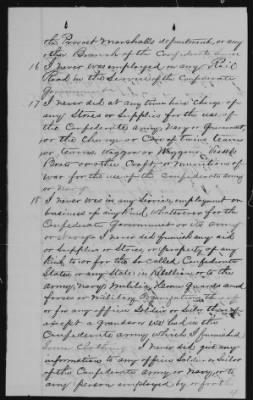 the Provost Marshalls department, or any
other Branch of the Confederate
16 I never was employed on any Rail
Road in the Service of the Confederate
Government
17 I never did at any time have Charge of
any Stores or Supplies for the use of
the Confederate army, Navy or Government,
or the Charge or Care of trains Teams
or Waggon or Waggons, Vessels
Boats or other Craft, or munitions of
war for the use of the Confederate army
or Navy
18 I never was in any service, employment or
business of any kind whatsoever for the
Confederate Government or its army
or Navy I never did furnish any aid
or Supplies or Stores, or property of any
kind to or for the So called Confederate
States, or any State in Rebellion or to the
army, navy, Militia, Home Guards and
forces or Military Organization thereof
or for any officer Soldier or Sailor thereof
except a Grandson we had in the
Confederate army which I furnished
Some Clothing I never did give any
information to any officer Soldier or Sailor
of the Confederate army or Navy, or to
any person employed by or for the